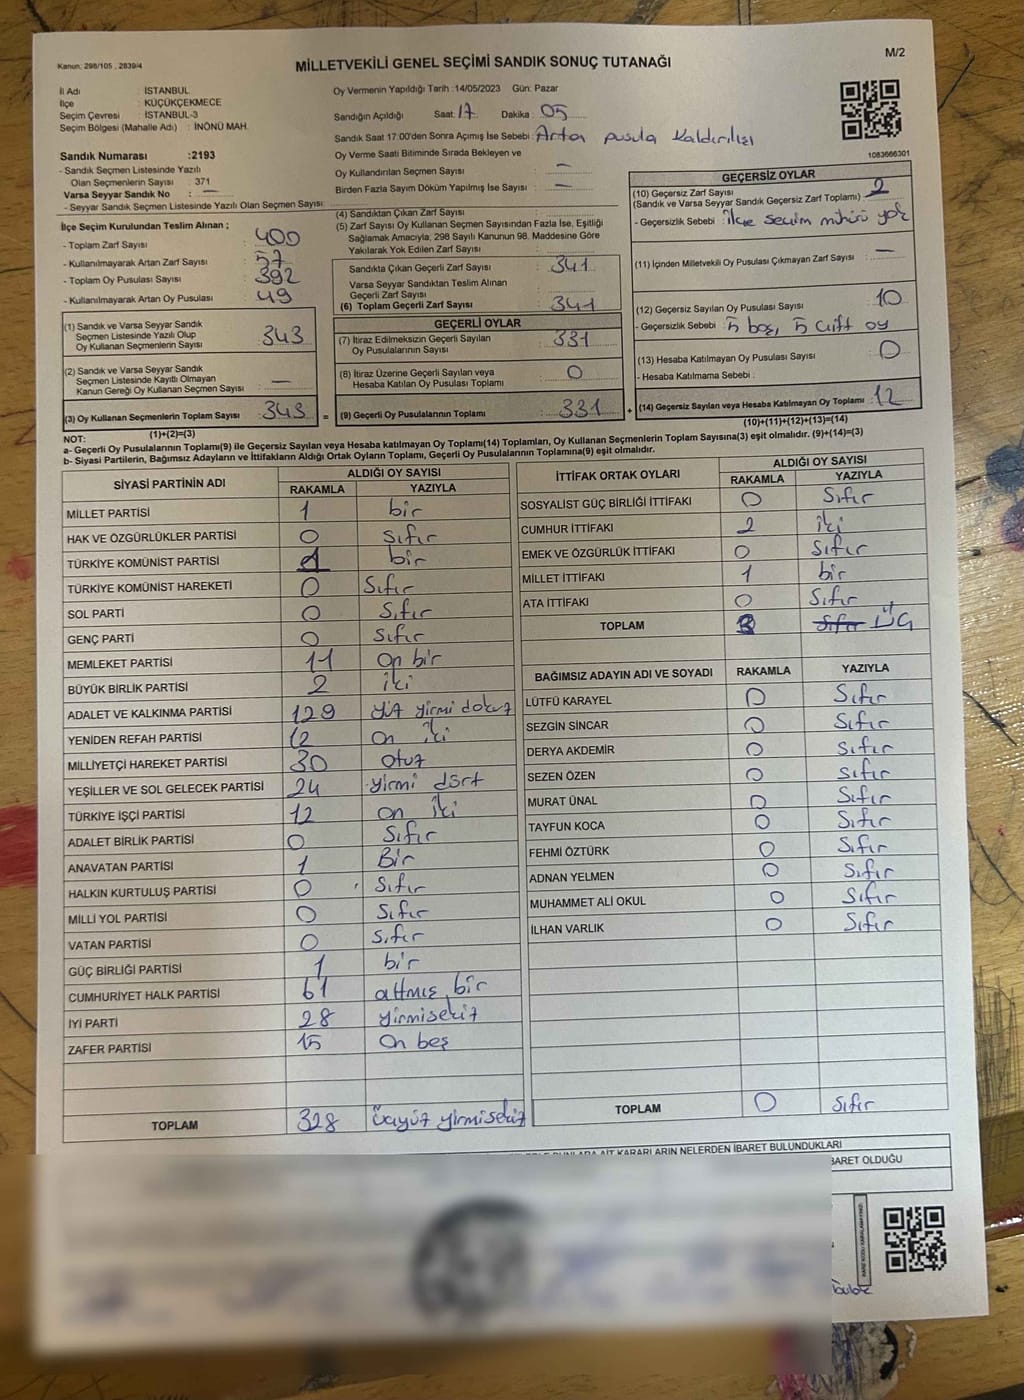 Kanun: 298/105 , 2839/4
MİLLETVEKİLİ GENEL SEÇİMİ SANDIK SONUÇ TUTANAĞI
M/2
İl Adı : İSTANBUL
İlçe : KÜÇÜKÇEKMECE
Seçim Çevresi : İSTANBUL-3
Seçim Bölgesi (Mahalle Adı) : İNÖNÜ MAH.
Sandık Numarası :2193
- Sandık Seçmen Listesinde Yazılı
Olan Seçmenlerin Sayısı : 371
Varsa Seyyar Sandık No : —
- Seyyar Sandık Seçmen Listesinde Yazılı Olan Seçmen Sayısı:
Oy Vermenin Yapıldığı Tarih :14/05/2023 Gün: Pazar
Sandığın Açıldığı Saat: 17 Dakika : 05
Sandık Saat 17:00'den Sonra Açımış İse Sebebi : Artan pusula kaldırılışı
Oy Verme Saati Bitiminde Sırada Bekleyen ve
Oy Kullandırılan Seçmen Sayısı : —
Birden Fazla Sayım Döküm Yapılmış İse Sayısı : —
1083666301
İlçe Seçim Kurulundan Teslim Alınan ;
- Toplam Zarf Sayısı : 400
- Kullanılmayarak Artan Zarf Sayısı : 57
- Toplam Oy Pusulası Sayısı : 392
- Kullanılmayarak Artan Oy Pusulası : 49
(1) Sandık ve Varsa Seyyar Sandık
Seçmen Listesinde Yazılı Olup
Oy Kullanan Seçmenlerin Sayısı : 343
(2) Sandık ve Varsa Seyyar Sandık
Seçmen Listesinde Kayıtlı Olmayan
Kanun Gereği Oy Kullanan Seçmen Sayısı : —
(3) Oy Kullanan Seçmenlerin Toplam Sayısı : 343
(1)+(2)=(3)
(4) Sandıktan Çıkan Zarf Sayısı :
(5) Zarf Sayısı Oy Kullanan Seçmen Sayısından Fazla İse, Eşitliği
Sağlamak Amacıyla, 298 Sayılı Kanunun 98. Maddesine Göre
Yakılarak Yok Edilen Zarf Sayısı :
Sandıkta Çıkan Geçerli Zarf Sayısı : 341
Varsa Seyyar Sandıktan Teslim Alınan
Geçerli Zarf Sayısı :
(6) Toplam Geçerli Zarf Sayısı : 341
GEÇERLİ OYLAR
(7) İtiraz Edilmeksizin Geçerli Sayılan
Oy Pusulalarının Sayısı : 331
(8) İtiraz Üzerine Geçerli Sayılan veya
Hesaba Katılan Oy Pusulası Toplamı : 0
= (9) Geçerli Oy Pusulalarının Toplamı : 331
GEÇERSİZ OYLAR
(10) Geçersiz Zarf Sayısı : 2
(Sandık ve Varsa Seyyar Sandık Geçersiz Zarf Toplamı)
- Geçersizlik Sebebi : İlçe seçim mührü yok
(11) İçinden Milletvekili Oy Pusulası Çıkmayan Zarf Sayısı : —
(12) Geçersiz Sayılan Oy Pusulası Sayısı : 10
- Geçersizlik Sebebi : 5 boş, 5 çift oy
(13) Hesaba Katılmayan Oy Pusulası Sayısı : 0
- Hesaba Katılmama Sebebi :
+ (14) Geçersiz Sayılan veya Hesaba Katılmayan Oy Toplamı : 12
(10)+(11)+(12)+(13)=(14)
NOT:
a- Geçerli Oy Pusulalarının Toplamı(9) ile Geçersiz Sayılan veya Hesaba katılmayan Oy Toplamı(14) Toplamları, Oy Kullanan Seçmenlerin Toplam Sayısına(3) eşit olmalıdır. (9)+(14)=(3)
b- Siyasi Partilerin, Bağımsız Adayların ve İttifakların Aldığı Ortak Oyların Toplamı, Geçerli Oy Pusulalarının Toplamına(9) eşit olmalıdır.
SİYASİ PARTİNİN ADI ALDIĞI OY SAYISI
RAKAMLA YAZIYLA
MİLLET PARTİSİ 1 bir
HAK VE ÖZGÜRLÜKLER PARTİSİ 0 sıfır
TÜRKİYE KOMÜNİST PARTİSİ 1 bir
TÜRKİYE KOMÜNİST HAREKETİ 0 Sıfır
SOL PARTİ 0 Sıfır
GENÇ PARTİ 0 sıfır
MEMLEKET PARTİSİ 11 on bir
BÜYÜK BİRLİK PARTİSİ 2 iki
ADALET VE KALKINMA PARTİSİ 129 yüz yirmi dokuz
YENİDEN REFAH PARTİSİ 12 on iki
MİLLİYETÇİ HAREKET PARTİSİ 30 otuz
YEŞİLLER VE SOL GELECEK PARTİSİ 24 yirmi dört
TÜRKİYE İŞÇİ PARTİSİ 12 on iki
ADALET BİRLİK PARTİSİ 0 Sıfır
ANAVATAN PARTİSİ 1 Bir
HALKIN KURTULUŞ PARTİSİ 0 Sıfır
MİLLİ YOL PARTİSİ 0 Sıfır
VATAN PARTİSİ 0 Sıfır
GÜÇ BİRLİĞİ PARTİSİ 1 bir
CUMHURİYET HALK PARTİSİ 61 altmış bir
İYİ PARTİ 28 yirmisekiz
ZAFER PARTİSİ 15 on beş
TOPLAM 328 üçyüz yirmisekiz
İTTİFAK ORTAK OYLARI ALDIĞI OY SAYISI
RAKAMLA YAZIYLA
SOSYALİST GÜÇ BİRLİĞİ İTTİFAKI 0 Sıfır
CUMHUR İTTİFAKI 2 iki
EMEK VE ÖZGÜRLÜK İTTİFAKI 0 Sıfır
MİLLET İTTİFAKI 1 bir
ATA İTTİFAKI 0 Sıfır
TOPLAM 3 Sıfır ÜÇ
BAĞIMSIZ ADAYIN ADI VE SOYADI RAKAMLA YAZIYLA
LÜTFÜ KARAYEL 0 Sıfır
SEZGİN SİNCAR 0 Sıfır
DERYA AKDEMİR 0 Sıfır
SEZEN ÖZEN 0 Sıfır
MURAT ÜNAL 0 Sıfır
TAYFUN KOCA 0 Sıfır
FEHMİ ÖZTÜRK 0 Sıfır
ADNAN YELMEN 0 Sıfır
MUHAMMET ALİ OKUL 0 Sıfır
İLHAN VARLIK 0 Sıfır
TOPLAM 0 Sıfır
KARARLARIN NELERDEN İBARET BULUNDUKLARI
BARET OLDUĞU